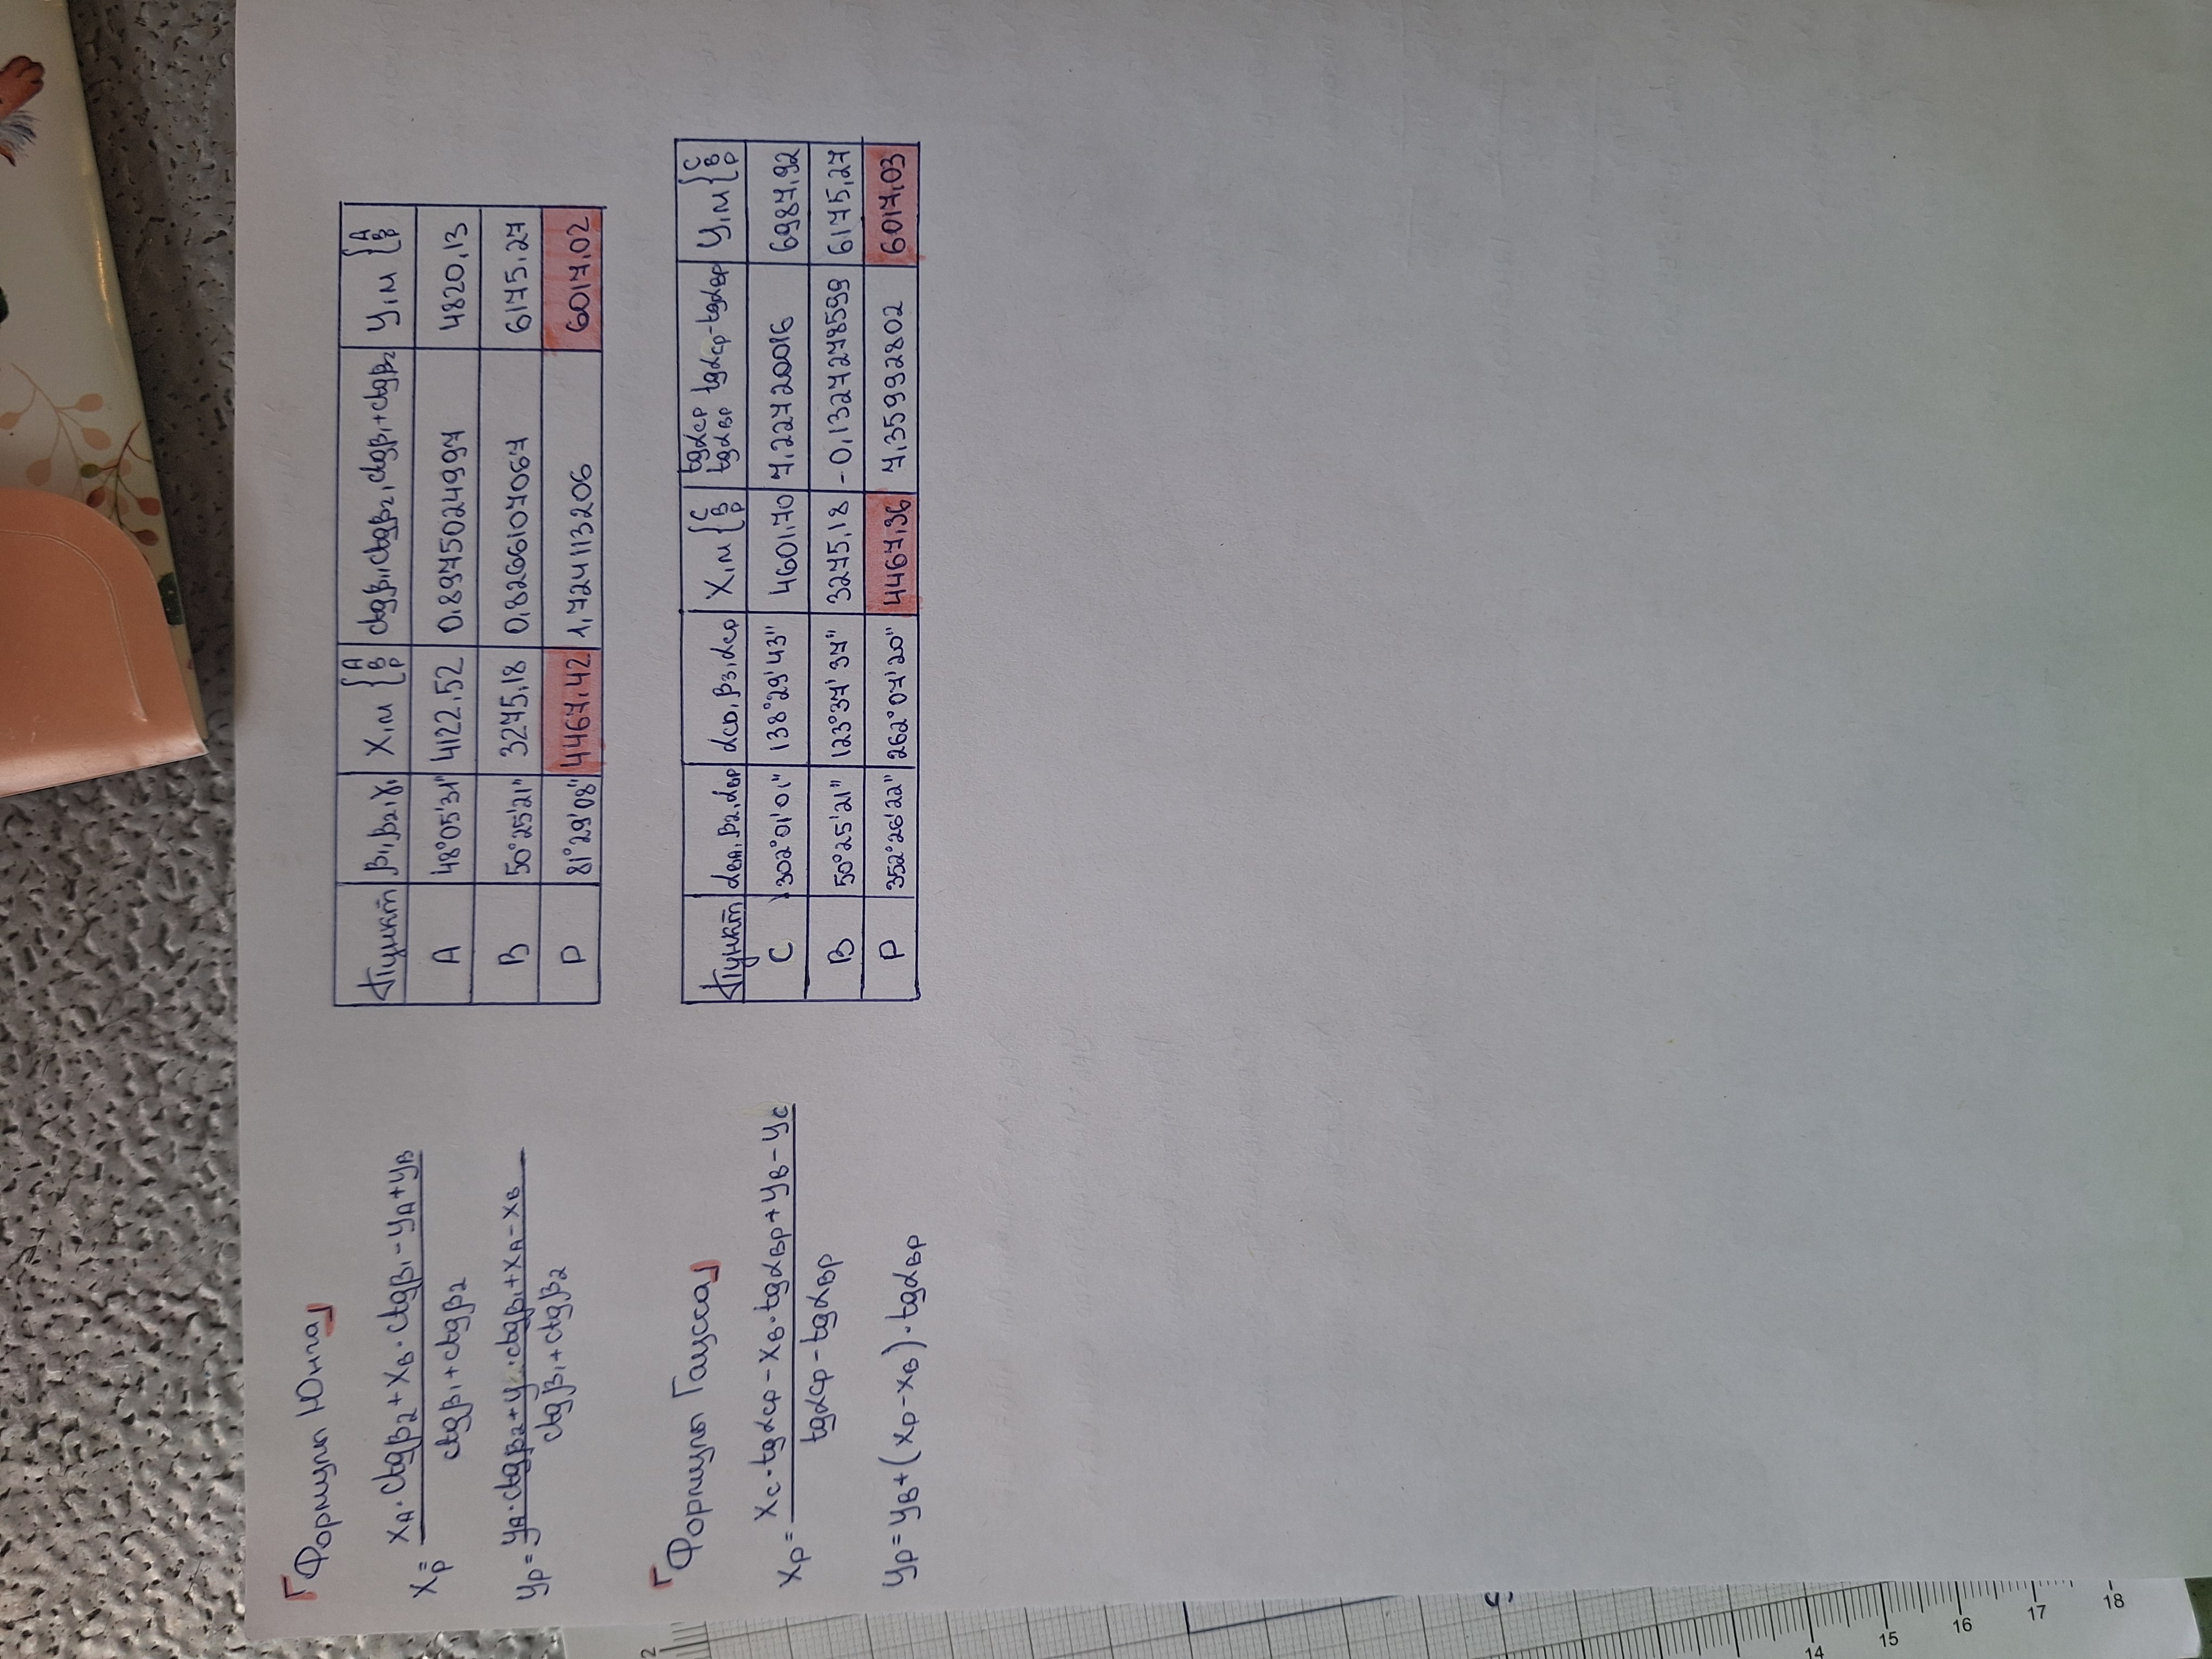 「Формулы Юнга」
Xp = (XA·ctgβ2 + XB·ctgβ1 - YA + YB) / (ctgβ1 + ctgβ2)
Yp = (YA·ctgβ2 + Y·ctgβ1 + XA - XB) / (ctgβ1 + ctgβ2)
Пункт β1,β2,γ1 X,м {A B P ctgβ1,ctgβ2,ctgβ1+ctgβ2 Y,м {A B P
A 48°05'31" 4122,52 0,8975024997 4820,13
B 50°25'21" 3275,18 0,8266107067 6175,27
P 81°29'08" 4467,42 1,724113206 6017,02
「Формулы Гаусса」
Xp = (XC·tgαCP - XB·tgαBP + YB - YC) / (tgαCP - tgαBP)
Yp = YB + (XP - XB)·tgαBP
Пункт αBA,β2,αBP αCD,β3,αCP X,м {C B P tgαCP tgαBP tgαCP-tgαBP Y,м {C B P
C 302°01'01" 138°29'43" 4601,70 7,227220016 6987,92
B 50°25'21" 123°37'37" 3275,18 -0,1327278599 6175,27
P 352°26'22" 262°07'20" 4467,36 7,35992802 6017,03
2
14
15
16
17
18